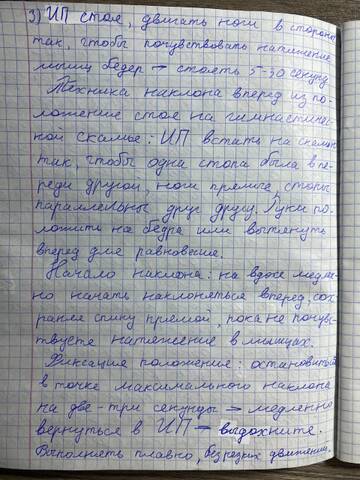 3) ИП стоя, двигать ноги в стороны
так, чтобы почувствовать натяжение
мышц бедер → стоять 5-30 секунд
Техника наклона вперед из по-
ложение стоя на гимнастичес-
кой скамье: ИП встать на скамью
так, чтобы одна стопа была впе-
реди другой, ноги прямые, стопы
параллельны друг другу. Руки по-
ложить на бедра или вытянуть
вперед для равновесие.
Начало наклона: на вдохе медлен-
но начать наклоняться вперед, сох-
раняя спину прямой, пока не почувс-
твуете натяжение в мышцах.
Фиксация положение: остановиться
в точке максимального наклона
на две-три секунды → медленно
вернуться в ИП → выдохните.
Выполнять плавно, без резких движений.